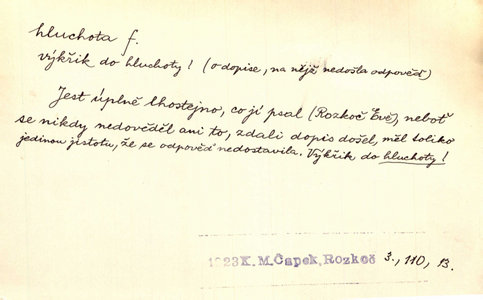 hluchota f.
výkřik do hluchoty! (o dopise, na nějž nedošla odpověď)
Jest úplně lhostejno, co jí psal (Rozkoč Evě), neboť
se nikdy nedověděl ani to, zdali dopis došel, měl toliko
jedinou jistotu, že se odpověď nedostavila. Výkřik do hluchoty!
1923 K. M. Čapek, Rozkoč 3., 110, B.